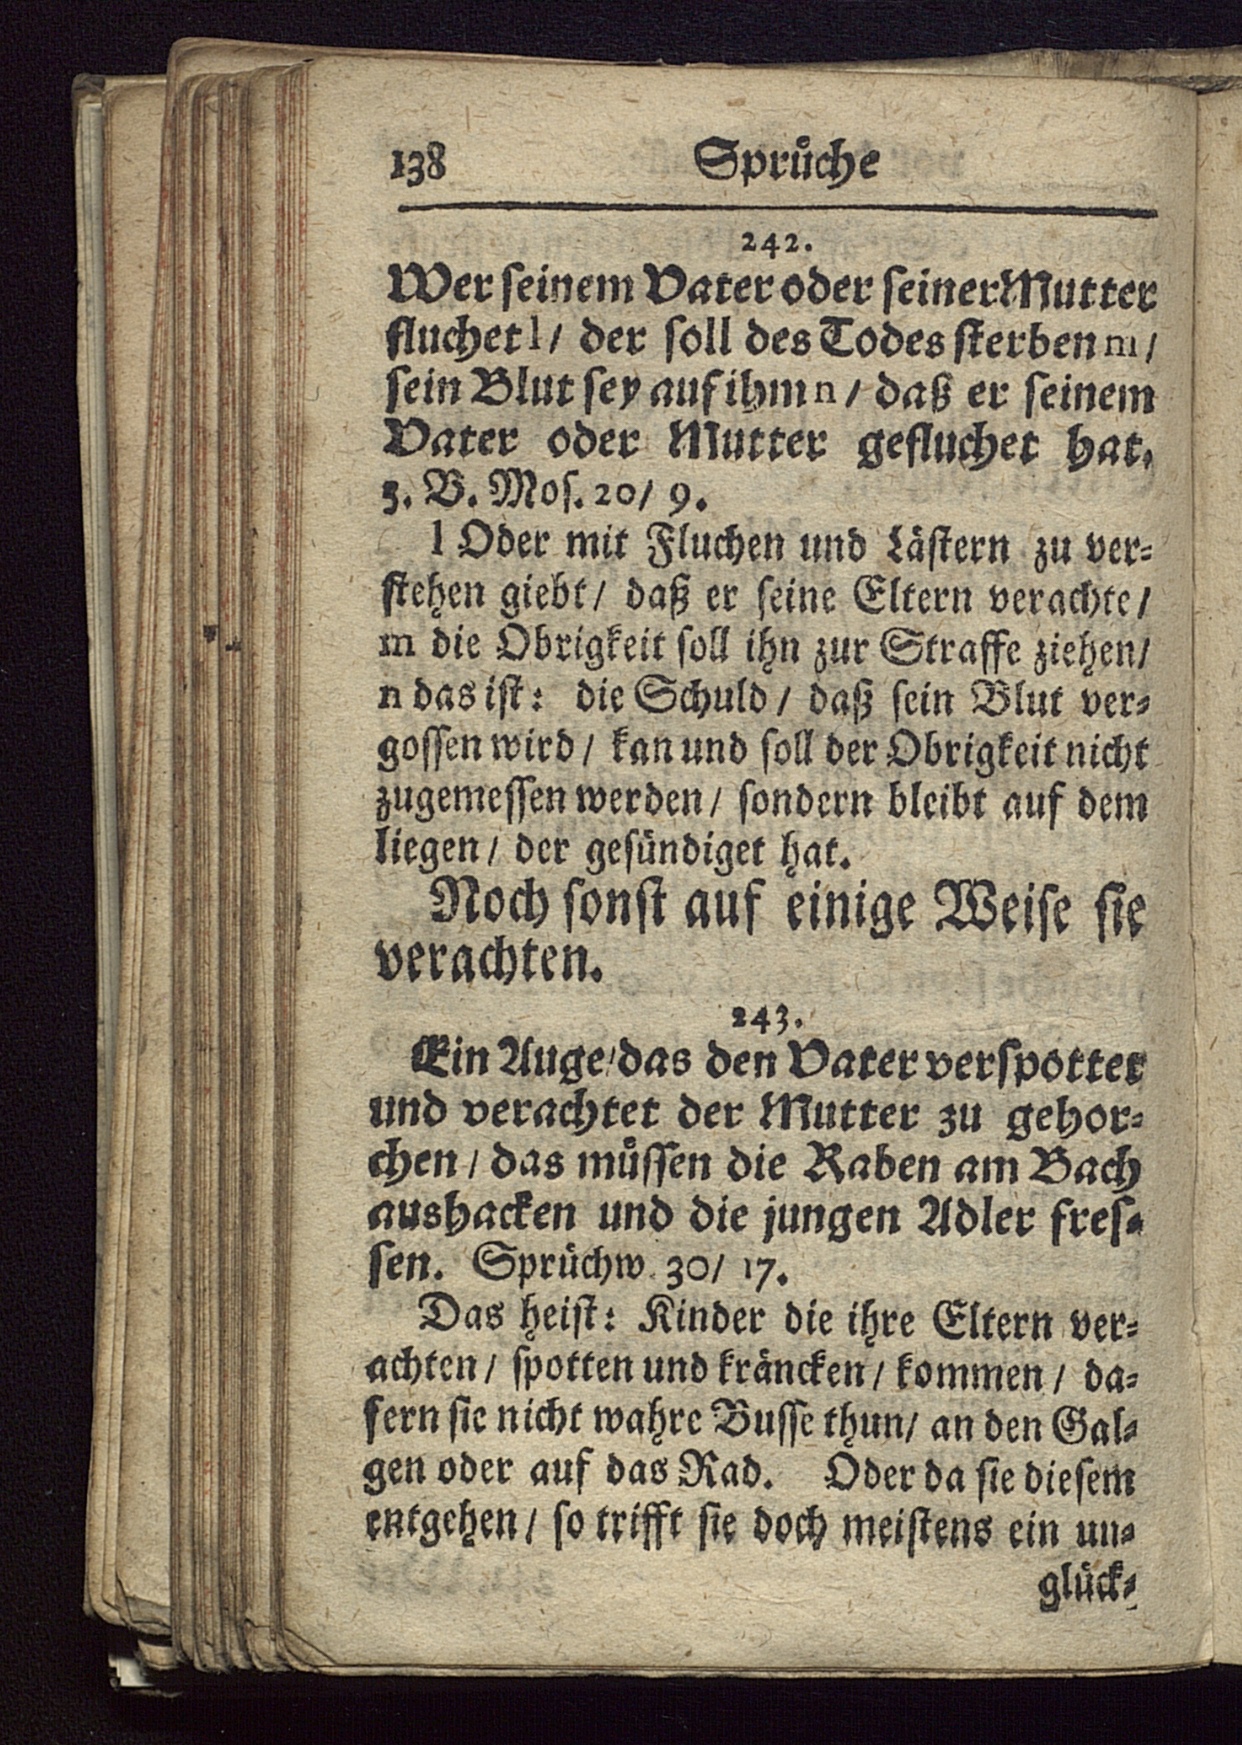 138 Sprüche
242.
Wer seinem Vater oder seiner Mutter
fluchet l / der soll des Todes sterben m /
sein Blut sey auf ihm n / daß er seinem
Vater oder Mutter gefluchet hat.
3. B. Mos. 20/ 9.
l Oder mit Fluchen und Lästern zu ver-
stehen giebt / daß er seine Eltern verachte /
m die Obrigkeit soll ihn zur Straffe ziehen /
n das ist: die Schuld / daß sein Blut ver-
gossen wird / kan und soll der Obrigkeit nicht
zugemessen werden / sondern bleibt auf dem
liegen / der gesündiget hat.
Noch sonst auf einige Weise sie
verachten.
243.
Ein Auge / das den Vater verspottet
und verachtet der Mutter zu gehor-
chen / das müssen die Raben am Bach
aushacken und die jungen Adler fres-
sen. Sprüchw. 30/ 17.
Das heist: Kinder die ihre Eltern ver-
achten / spotten und kräncken / kommen / da-
fern sie nicht wahre Busse thun / an den Gal-
gen oder auf das Rad. Oder da sie diesem
entgehen / so trifft sie doch meistens ein un-
glück-